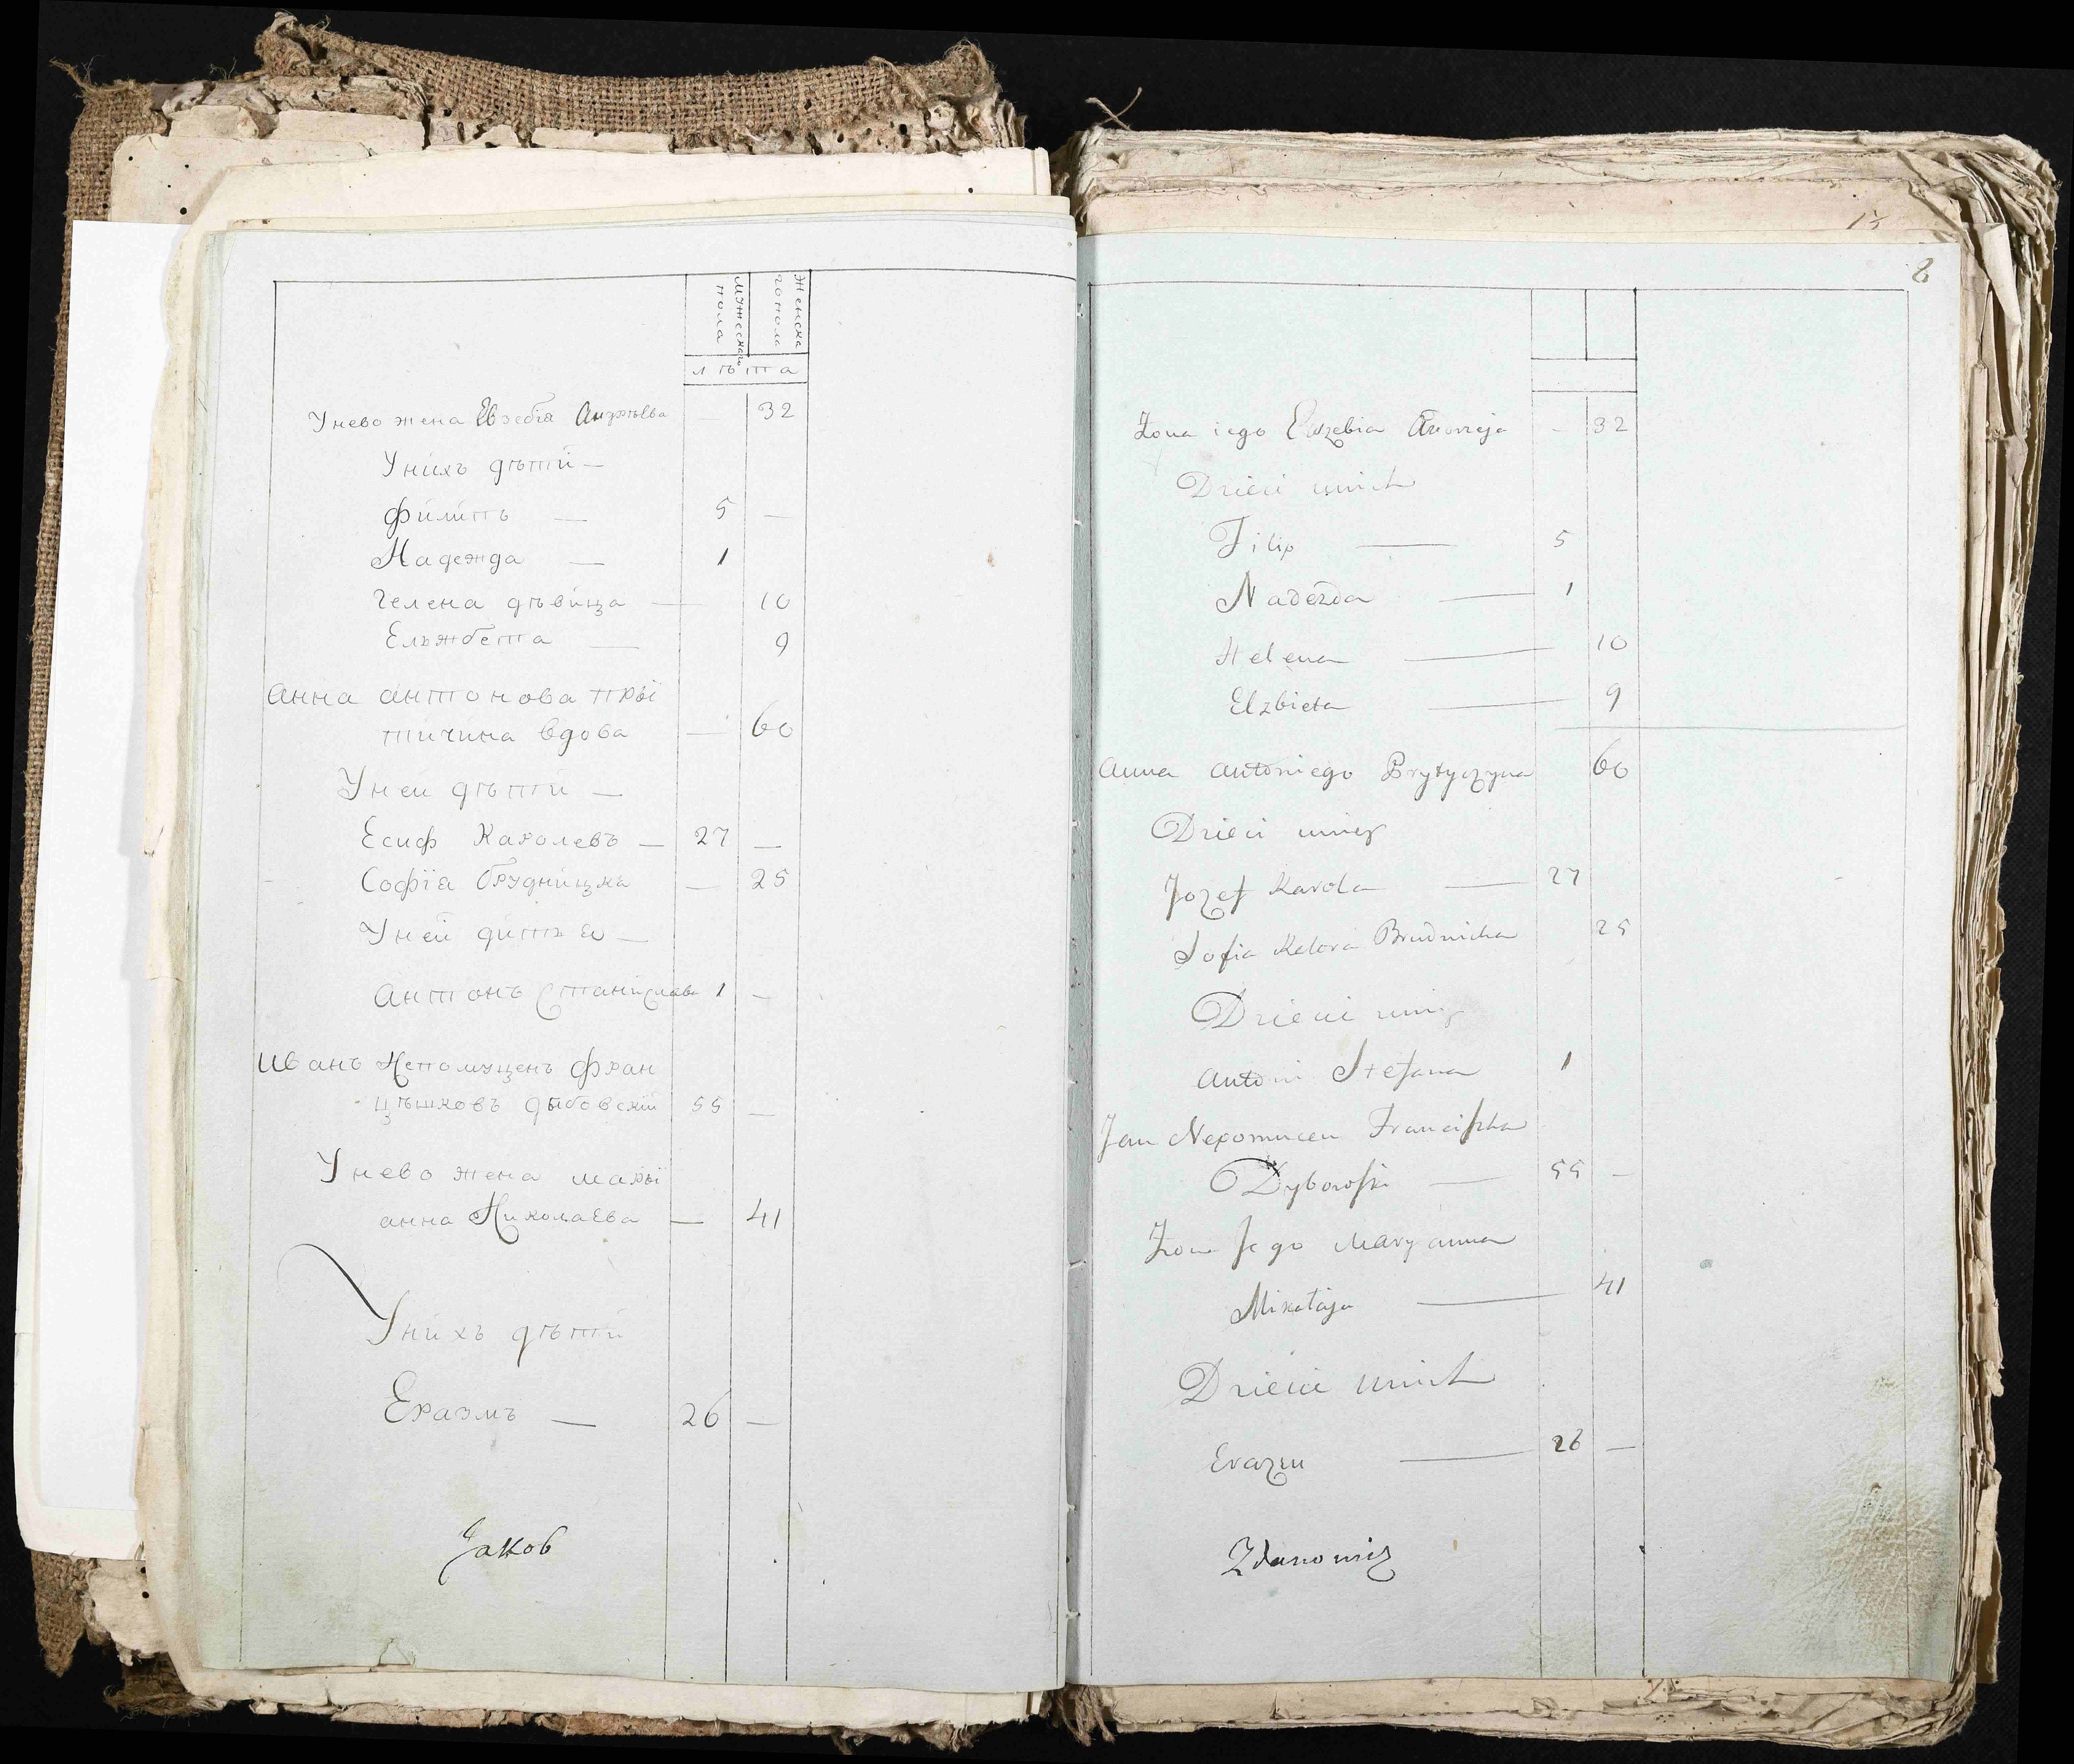 мужескаго пола
Женска го пола
лѣта
Унево жена Евзебія Андрѣева — 32
Унихъ дѣти —
филипъ — 5 —
Надежда — 1
гелена дѣвица — 10
Ельжбета — 9
Анна антонова прыі
тичина вдова — 60
Уней дѣти —
Есиф Каролевъ — 27 —
Софія брудницка — 25
Уней дитъ —
Антонъ Станиславъ 1 —
Иванъ Непомуценъ фран
цѣшковъ дыбовскій 55 —
Унево жена мары
анна Николаева — 41
Унихъ дѣти
Еразмъ — 26 —
Jakob
13
8
Żona iego Euzebia Andrzeja - 32
Dzieci unich
Filip — 5
Nadezda — 1
Helena — 10
Elzbieta — 9
Anna Antoniego Prytyczyna 60
Dzieci uniey
Jozef Karola — 27
Sofia Brudnicka 25
Dzieci uniey
Antoni Stefana 1
Jan Nepomucen Franciszka
Dyboroski — 55 —
Żona Jego Maryanna
Mikołaja — 41
Dzieci unich
Erazm — 26 —
Zdanowicz